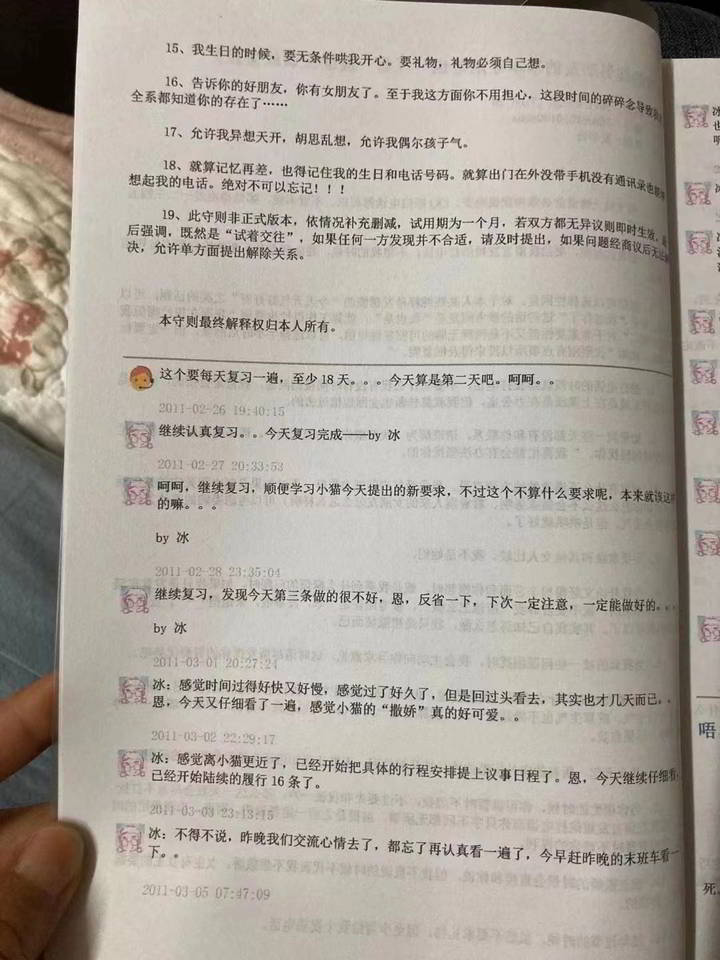 15、我生日的时候，要无条件哄我开心。要礼物，礼物必须自己想。
16、告诉你的好朋友，你有女朋友了。至于我这方面你不用担心，这段时间的碎碎念导致
全系都知道你的存在了……
17、允许我异想天开，胡思乱想，允许我偶尔孩子气。
18、就算记忆再差，也得记住我的生日和电话号码。就算出门在外没带手机没有通讯录也
想起我的电话。绝对不可以忘记！！！
19、此守则非正式版本，依情况补充删减，试用期为一个月，若双方都无异议则即时生效，
后强调，既然是“试着交往”，如果任何一方发现并不合适，请及时提出，如果问题经商议后无
决，允许单方面提出解除关系。
本守则最终解释权归本人所有。
这个要每天复习一遍，至少 18 天。。。今天算是第二天吧。呵呵。。
2011-02-26 19:40:15
继续认真复习。。今天复习完成——by 冰
2011-02-27 20:33:53
呵呵，继续复习，顺便学习小猫今天提出的新要求，不过这个不算什么要求呢，本来就该这
的嘛。。。
by 冰
2011-02-28 23:35:04
继续复习，发现今天第三条做的很不好，恩，反省一下，下次一定注意，一定能做好的。。
by 冰
2011-03-01 20:27:24
冰：感觉时间过得好快又好慢，感觉过了好久了，但是回过头看去，其实也才几天而已。。
恩，今天又仔细看了一遍，感觉小猫的“撒娇”真的好可爱。。
2011-03-02 22:29:17
冰：感觉离小猫更近了，已经开始把具体的行程安排提上议事日程了。恩，今天继续仔细看
已经开始陆续的履行 16 条了。
2011-03-03 23:13:15
冰：不得不说，昨晚我们交流心情去了，都忘了再认真看一遍了，今早赶昨晚的末班车看一
下。。
2011-03-05 07:47:09
唔
死